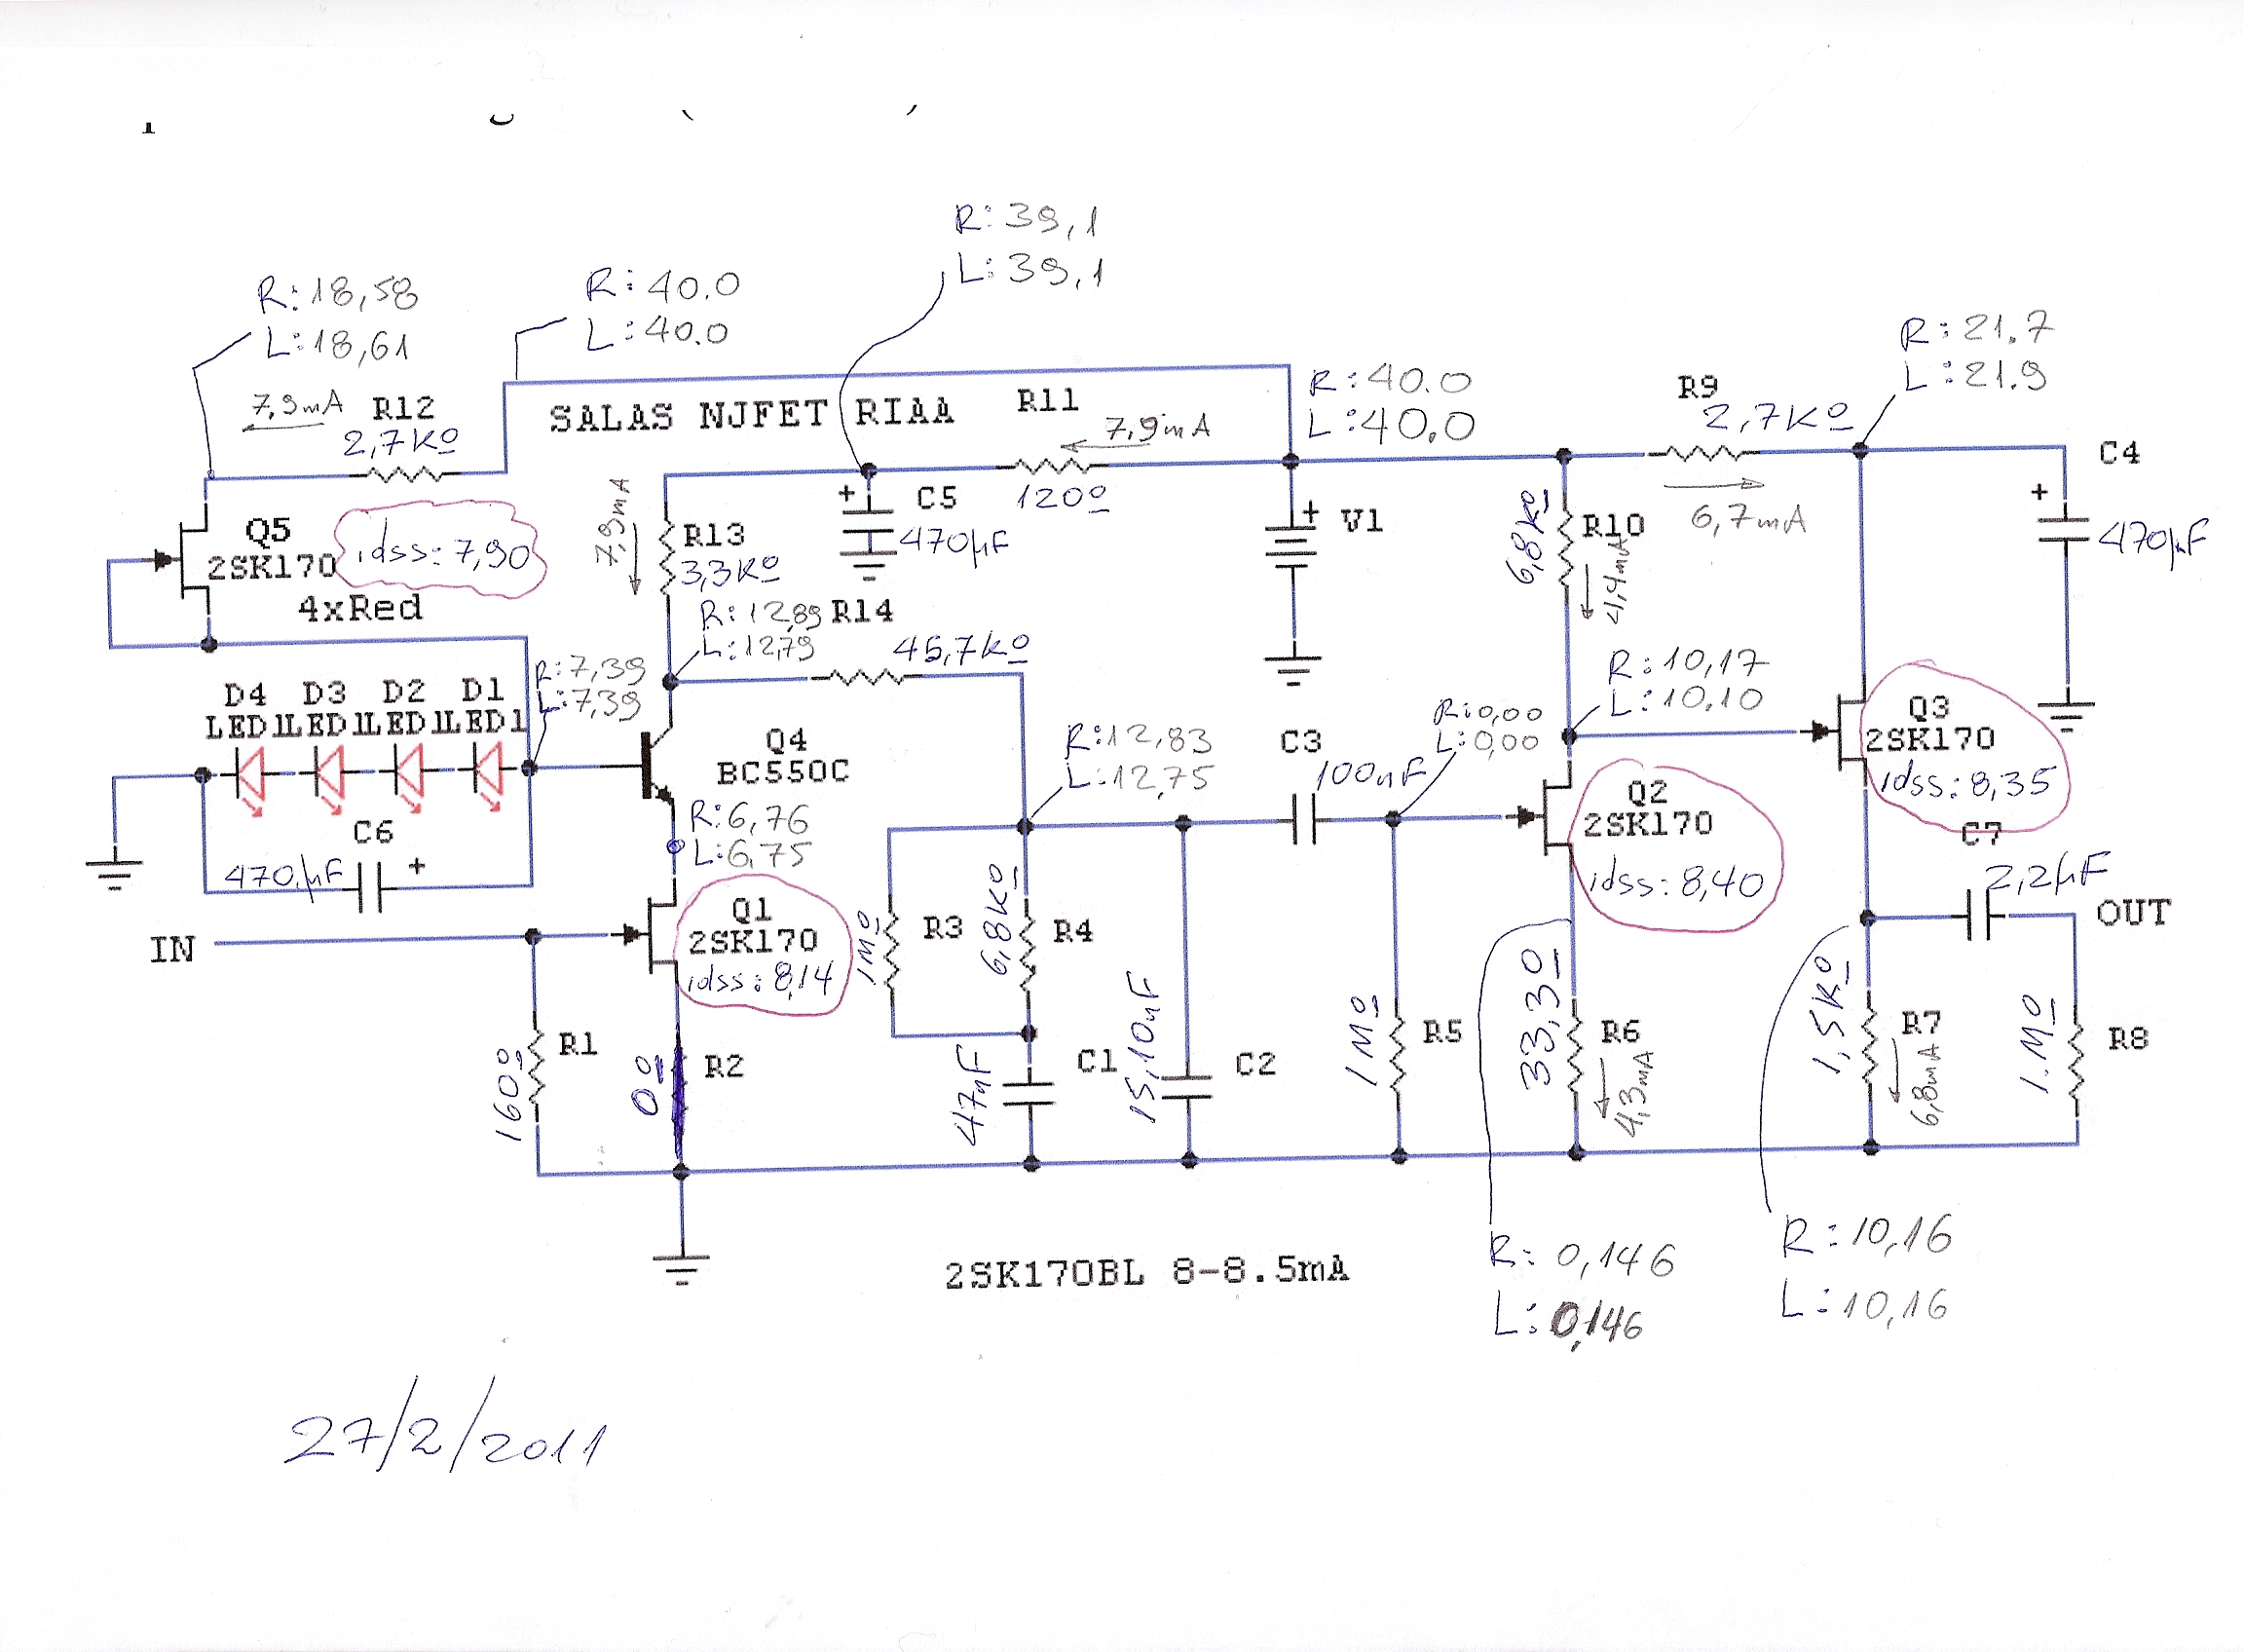 R: 39,1
L: 39,1
R: 18,58
L: 18,61
R: 40.0
L: 40.0
R: 21.7
L: 21.9
R: 40.0
L: 40,0
7,9mA
R12
2,7KΩ
SALAS NJFET RIAA
R11
7,9mA
120Ω
R9
2,7KΩ
6,7mA
C4
+
470µF
Q5
2SK170
idss: 7,90
4xRed
7,9mA
R13
3,3KΩ
+
C5
470µF
+
V1
6,8KΩ
R10
4,4mA
R: 12,89
L: 12,79
R14
45,7KΩ
R: 7,39
L: 7,39
D4
D3
D2
D1
LED1
LED1
LED1
LED1
Q4
BC550C
R: 12,83
L: 12,75
C3
100nF
R: 0,00
L: 0,00
R: 10,17
L: 10,10
Q3
2SK170
idss: 8,35
Q2
2SK170
idss: 8,40
C6
470µF
+
R: 6,76
L: 6,75
C7
2,2µF
OUT
IN
Q1
2SK170
idss: 8,14
1MΩ
R3
6,8KΩ
R4
R1
160Ω
0Ω
R2
47nF
C1
15,10nF
C2
1MΩ
R5
33,3Ω
R6
4,3mA
1,5KΩ
R7
6,8mA
1.MΩ
R8
2SK170BL 8-8.5mA
R: 0,146
L: 0,146
R: 10,16
L: 10,16
27/2/2011